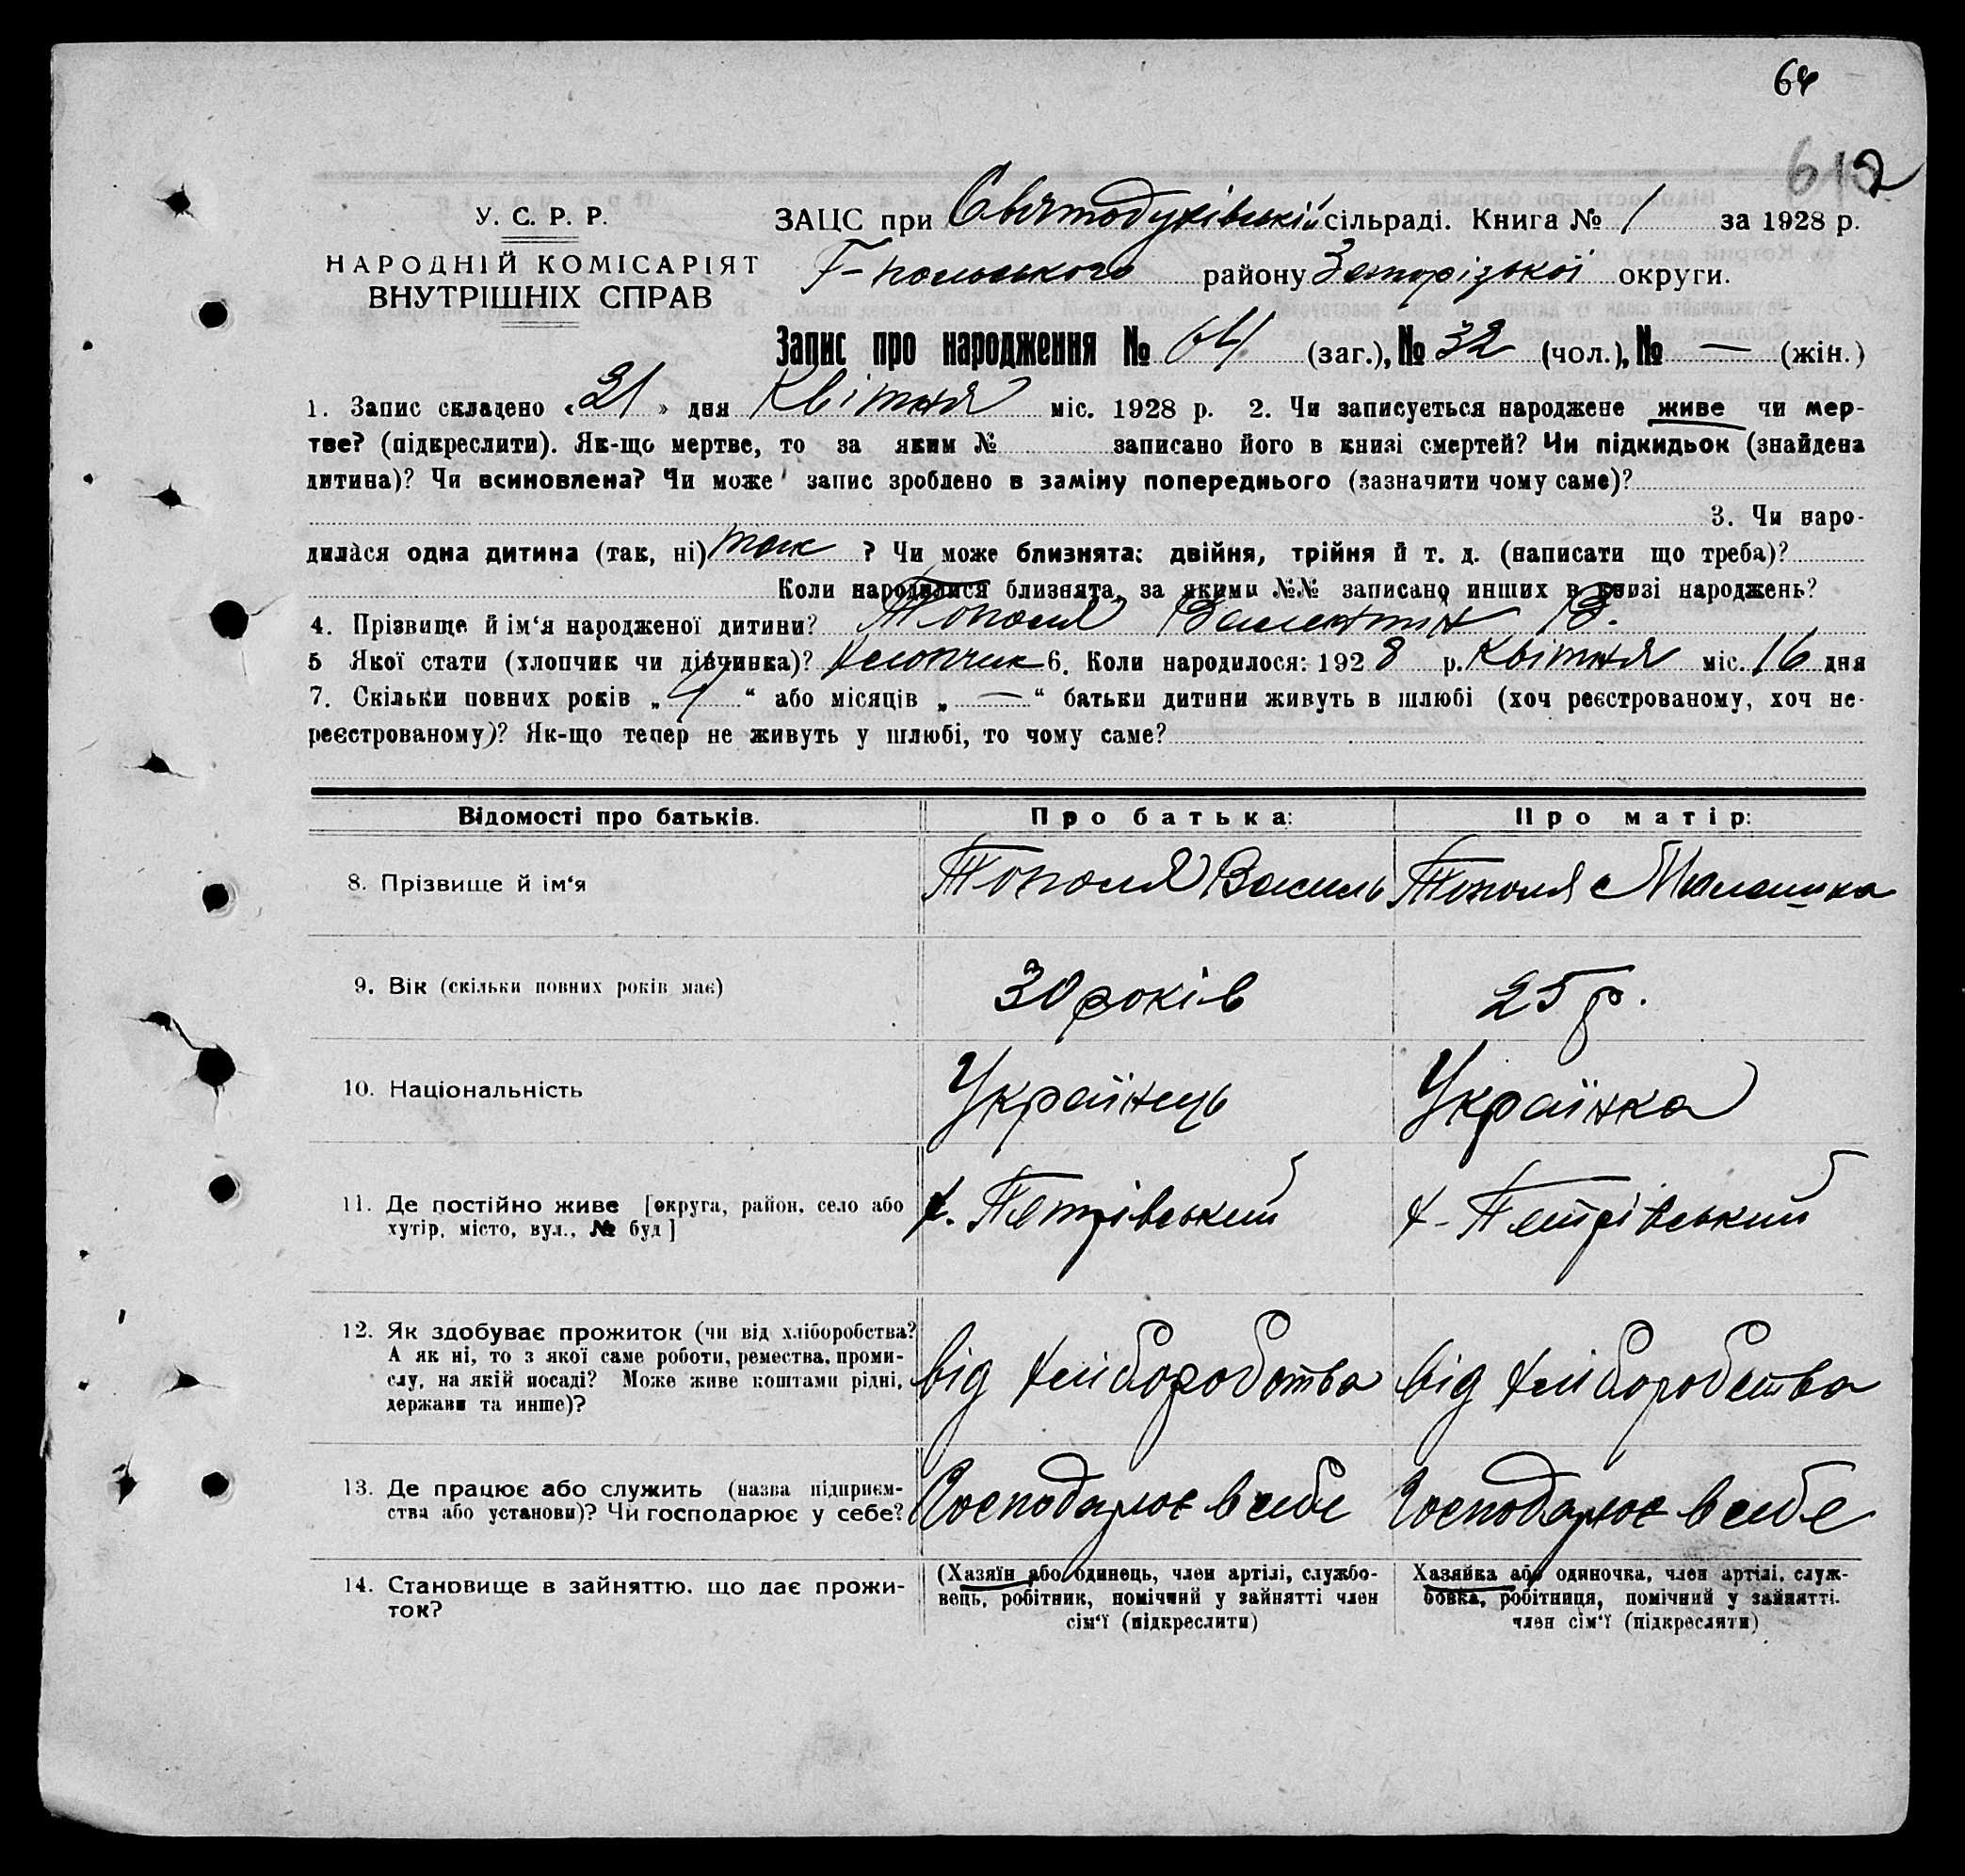 64
612
У. С. Р. Р.
НАРОДНІЙ КОМІСАРІЯТ
ВНУТРІШНІХ СПРАВ
ЗАЦС при Святодухівській сільраді. Книга № 1 за 1928 р.
Г-польського району Запорізької округи.
Запис про народження № 64 (заг.), № 32 (чол.), № — (жін.)
1. Запис складено «21» дня Квітня міс. 1928 р. 2. Чи записується народжене живе чи мер-
тве? (підкреслити). Як-що мертве, то за яким № записано його в книзі смертей? Чи підкидьок (знайдена
дитина)? Чи всиновлена? Чи може запис зроблено в заміну попереднього (зазначити чому саме)?
3. Чи наро-
дилася одна дитина (так, ні) так ? Чи може близнята: двійня, трійня й т. д. (написати що треба)?
Коли народилися близнята, за якими №№ записано инших в книзі народжень?
4. Прізвище й ім‘я народженої дитини? Тополя Валентин В.
5 Якої стати (хлопчик чи дівчинка)? Хлопчик 6. Коли народилося: 1928 р. Квітня міс. 16 дня
7. Скільки повних років „ “ або місяців „ — “ батьки дитини живуть в шлюбі (хоч реєстрованому, хоч не-
реєстрованому)? Як-що тепер не живуть у шлюбі, то чому саме?
Відомості про батьків. Про батька: Про матір:
8. Прізвище й ім‘я Тополя Василь Тополя Малашка
9. Вік (скільки повних років має) 30 років 25 р.
10. Національність Українець Українка
11. Де постійно живе [округа, район, село або
хутір, місто, вул., № буд] х. Петрівський х- Петрівський
12. Як здобуває прожиток (чи від хліборобства?
А як ні, то з якої саме роботи, ремества, проми-
слу, на якій посаді? Може живе коштами рідні,
держави та инше)? від хліборобства від хліборобства
13. Де працює або служить (назва підприєм-
ства або установи)? Чи господарює у себе? Господарює в себе Господарює в себе
14. Становище в зайняттю, що дає прожи-
ток?
(Хазяїн або одинець, член артілі, службо-
вець, робітник, помічний у зайнятті член
сім‘ї (підкреслити)
Хазяйка або одиночка, член артілі, служ-
бовка, робітниця, помічний у зайнятті.
член сім‘ї (підкресляти)